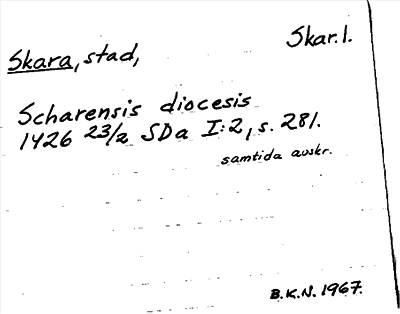 Skara, stad, Skar. 1.
Scharensis diocesis
1426 23/2 SDa I:2, s. 281.
samtida avskr.
B.K.N. 1967.